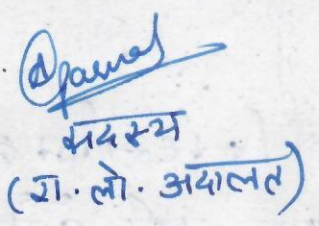 सदस्य
(रा. लो. अदालत)